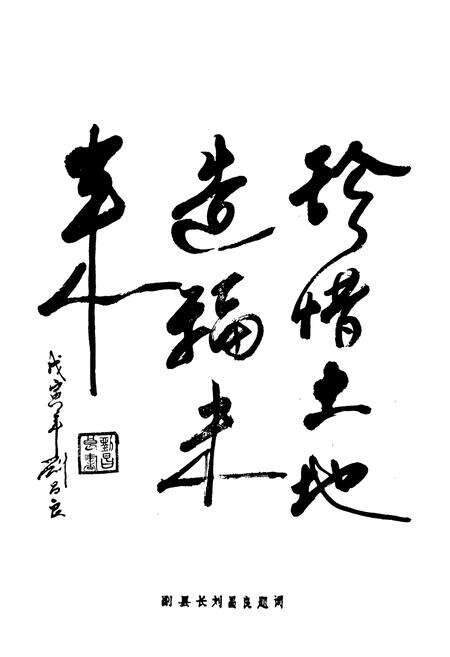 珍惜土地
造福未
来
戊寅年劉昌良
劉昌
良書
副县长刘昌良题词